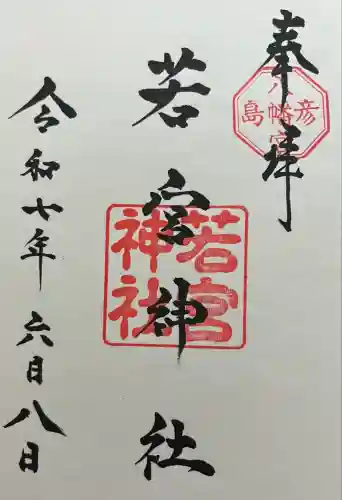 奉拝
八幡宮
彦島
若宮神社
若宮
神社
令和七年六月八日